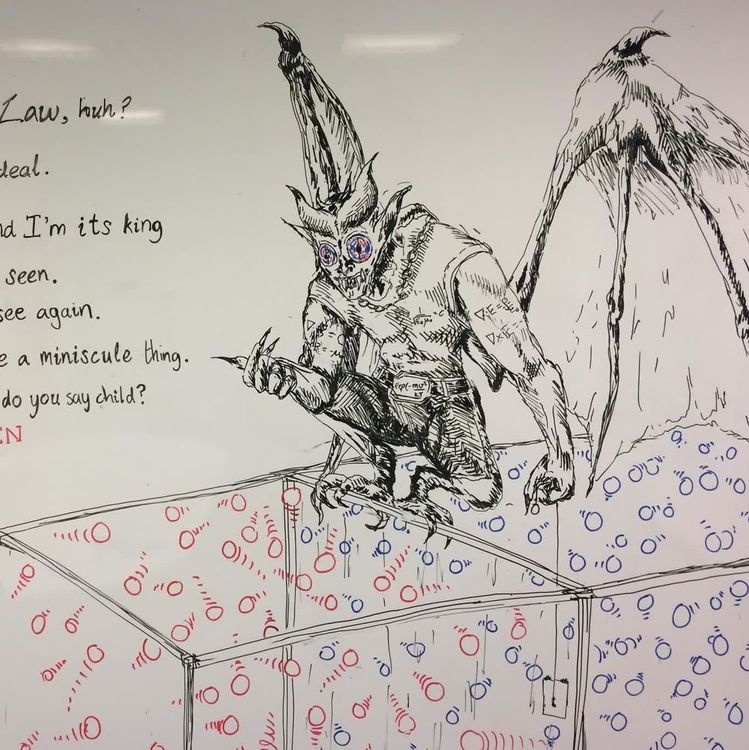 Law, huh?
deal.
nd I'm its king
seen.
see again.
e a miniscule thing.
do you say child?
EN